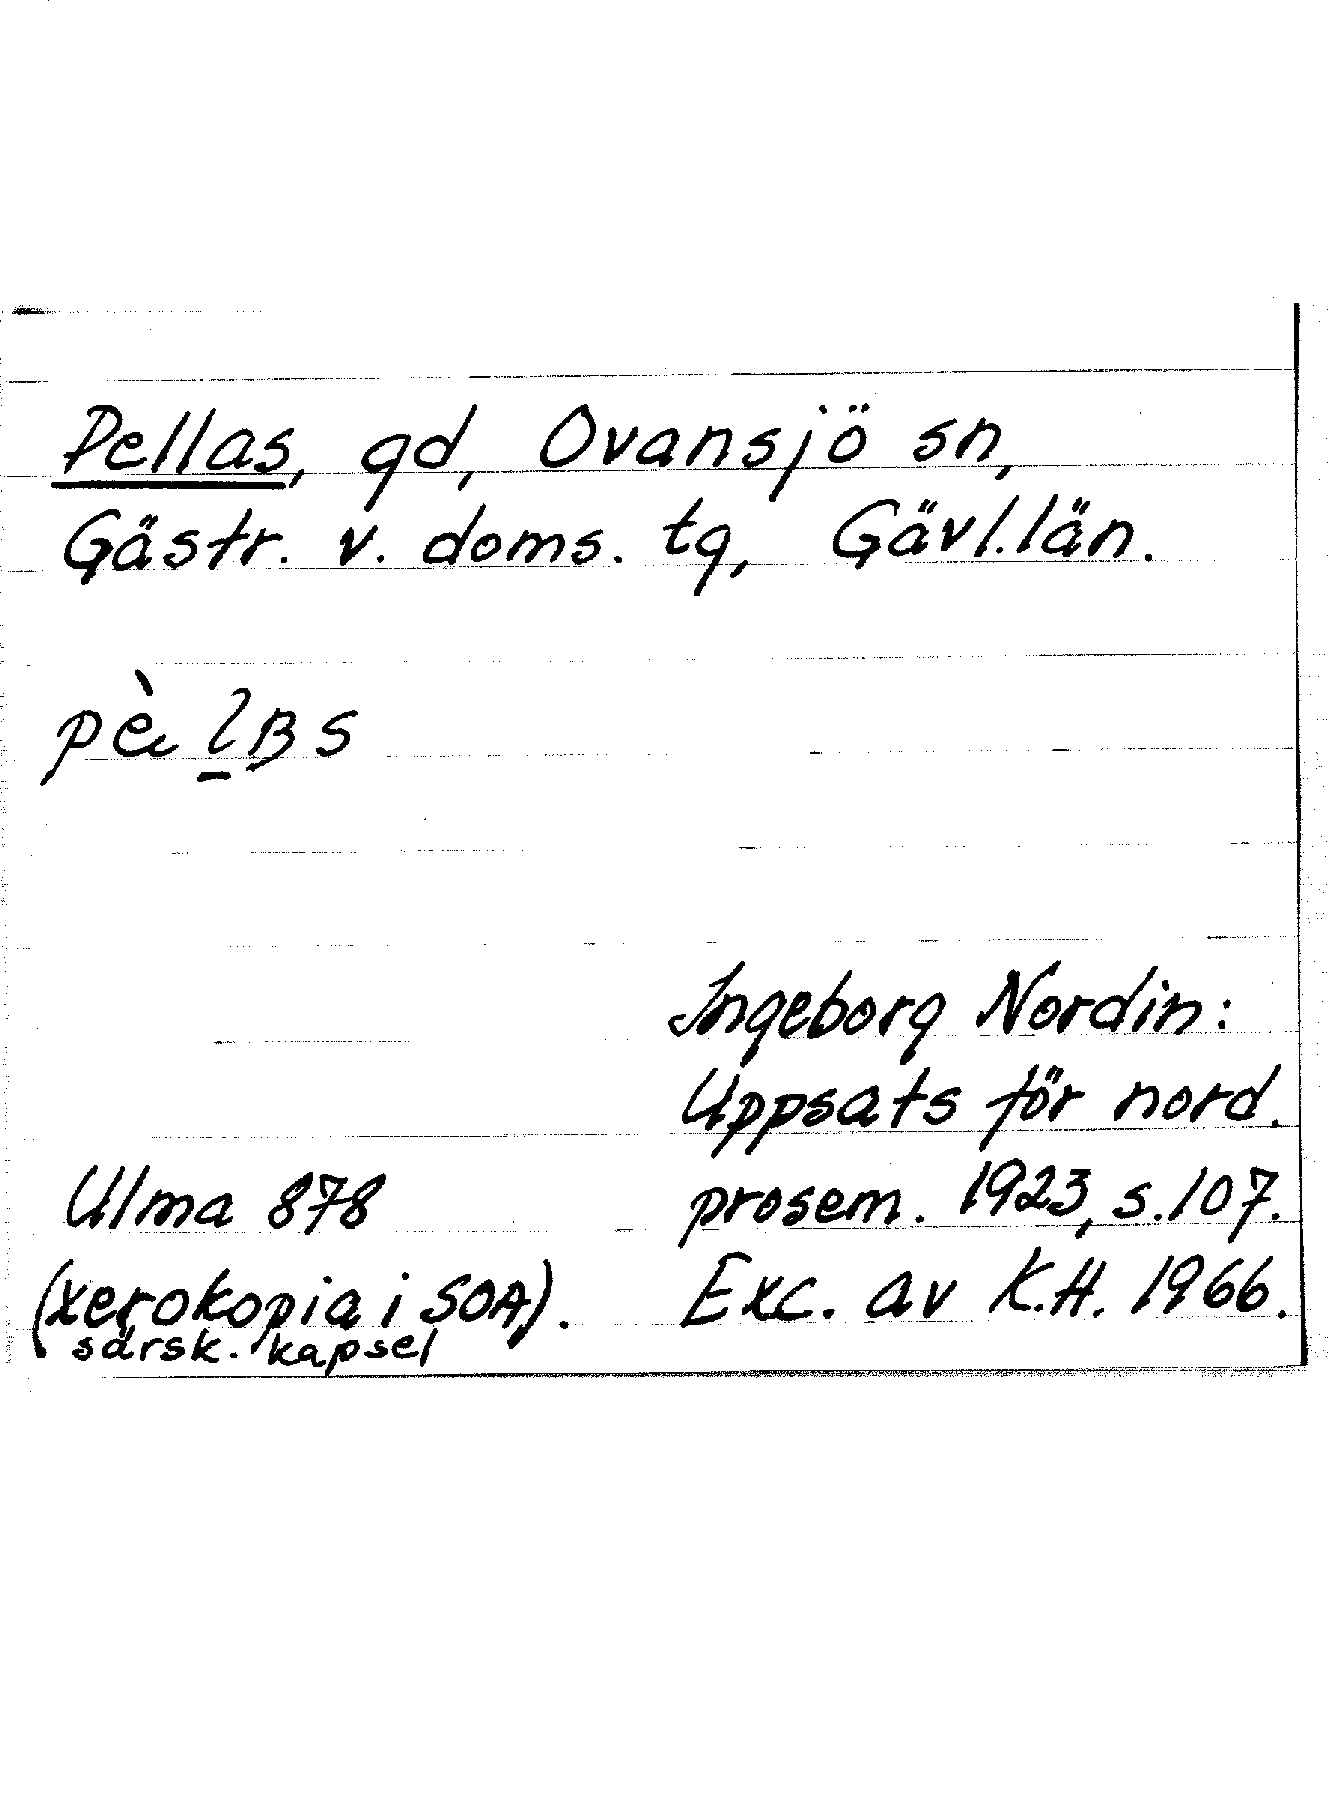 Pellas, gd, Ovansjö sn,
Gästr. v. doms. tg, Gävl.län.
Ingeborg Nordin:
Uppsats för nord.
prosem. 1923, s.107.
Exc. av K.H. 1966.
Ulma 878
(xerokopia i SOA).
särsk. kapsel